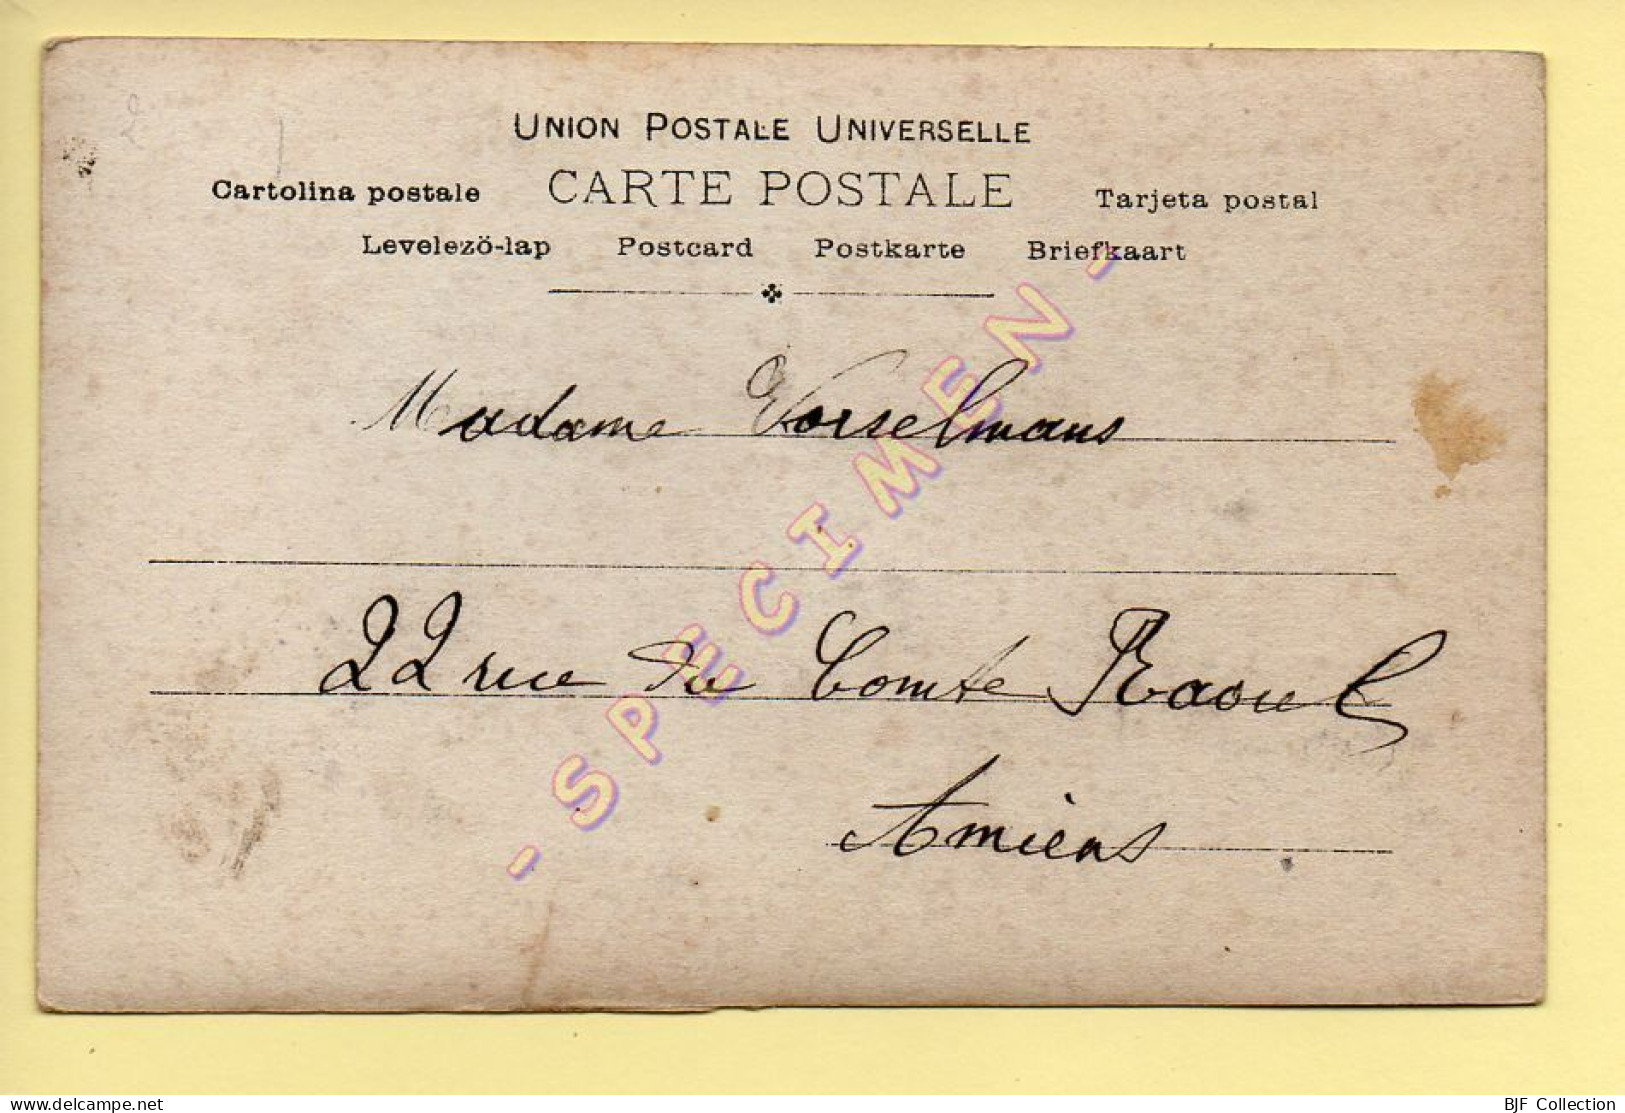 UNION POSTALE UNIVERSELLE
Cartolina postale CARTE POSTALE Tarjeta postal
Levelező-lap Postcard Postkarte Briefkaart
- SPECIMEN -
Madame Vorselmans
22 rue du Comte Raoul
Amiens
www.delcampe.net
BJF Collection